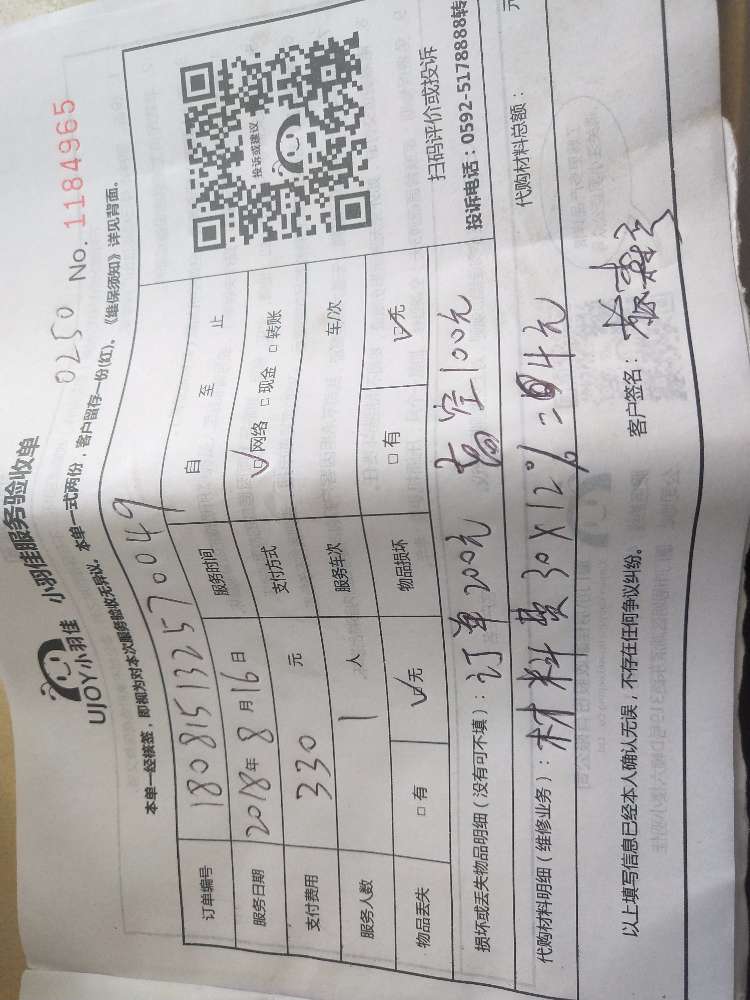 UJOY小羽佳 小羽佳服务验收单
0250 No. 1184965
本单一经核签，即视为对本次服务验收无异议。本单一式两份，客户留存一份(红)。《维保须知》详见背面。
订单编号 180815132570049
服务日期 2018年8月16日 服务时间 自 至 止
支付费用 330 元 支付方式 ☑网络 □现金 □转账
服务人数 1 人 服务车次 车/次
物品丢失 □有 ☑无 物品损坏 □有 ☑无
投诉或建议
扫码评价或投诉
投诉电话：0592-5178888转
损坏或丢失物品明细（没有可不填）：订单200元 高空100元
代购材料明细（维修业务）：材料费30X12%=4元 代购材料总额： 元
以上填写信息已经本人确认无误，不存在任何争议纠纷。 客户签名：